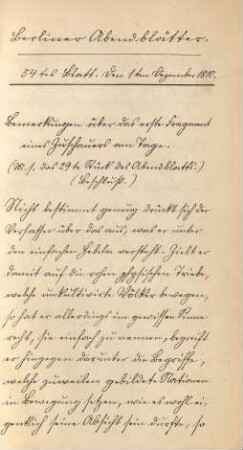 Berliner Abendblätter.
54tes Blatt. Den 1ten Dezember 1810.
Bemerkungen über das erste Fragment
eines Zuschauers am Tage.
(M. s. das 29te Stück des Abendblatts.)
(Beschluß.)
Nicht bestimmt genug drückt sich der
Verfasser über das aus, was er unter
den einfachen Hebeln versteht. Zielt er
damit auf die rohen physischen Triebe,
welche unkultivirte Völker bewegen,
so hat er allerdings im gewissen Sinne
recht, sie einfach zu nennen, begreift
er hingegen darunter die Begriffe,
welche zuweilen gebildete Nationen
in Bewegung setzen, wie es wohl ei-
gentlich seine Absicht sein durfte, so